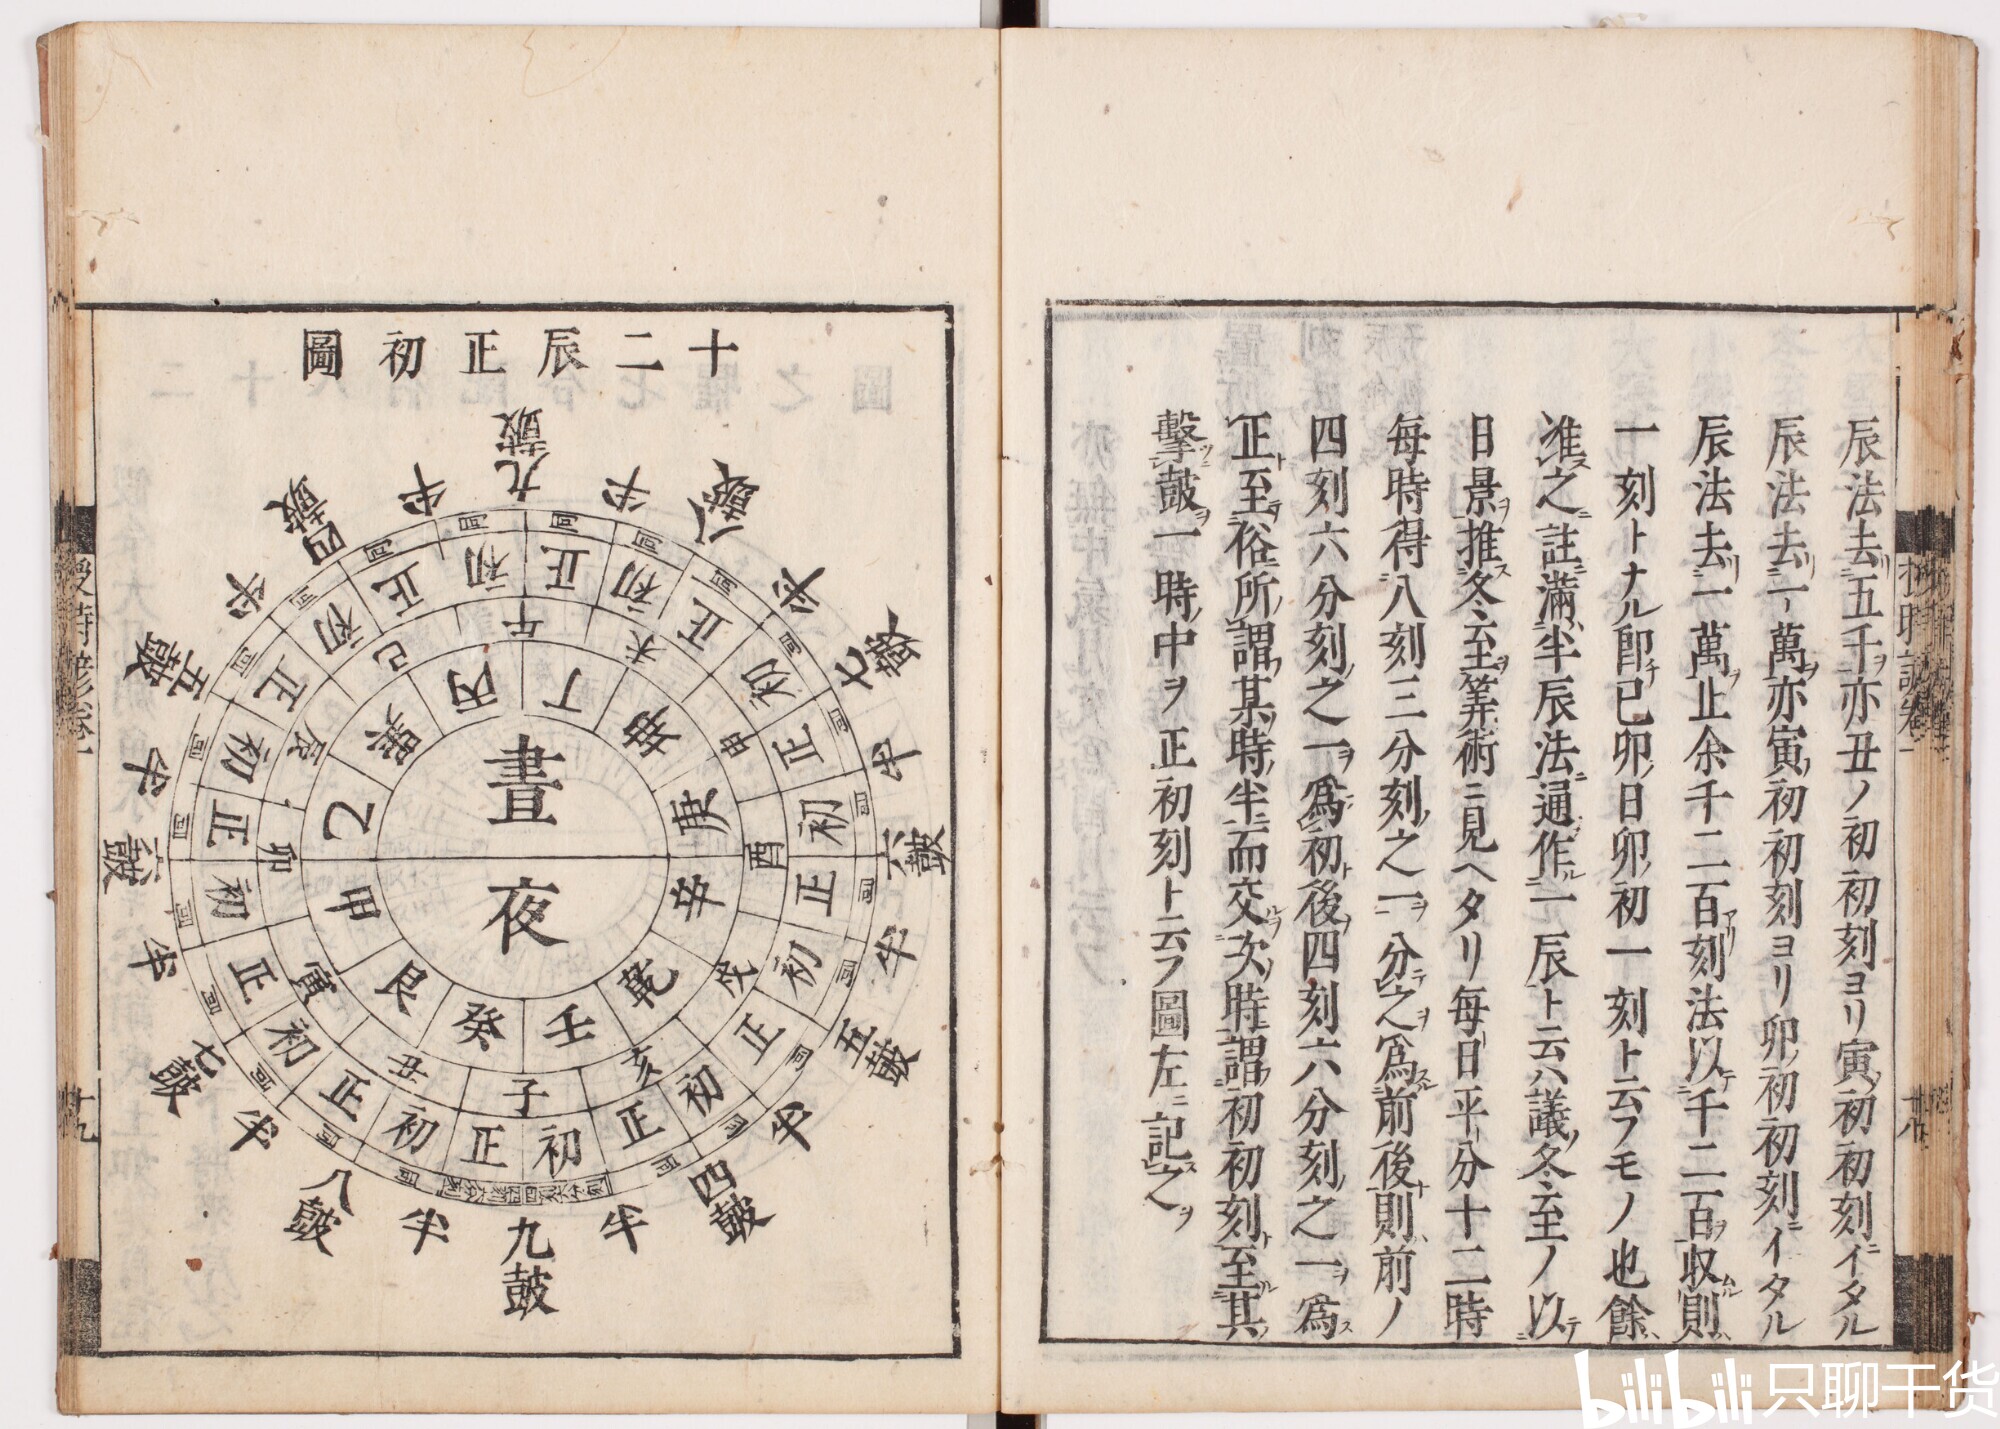 辰法去五千亦丑ノ初初刻ヨリ寅初初刻イタル
辰法去一萬亦寅初初刻ヨリ卯初初刻イタル
辰法去一萬止余千二百刻法以千二百収則
一刻トナル即已卯日卯初一刻ト云フモノ也餘
准之註滿半辰法通作一辰ト云ハ議冬至ノ以
日景推冬至等術ニ見ヘタリ每日平分十二時
每時得八刻三分刻之一分之為前後則前ノ
四刻六分刻之一為初後四刻六分刻之一為
正至俗所謂某時半而交次時謂初初刻至其
擊鼓一時中ヲ正初刻ト云フ圖左ニ記之
十二辰正初圖
九鼓
半
八鼓
半
七鼓
半
六鼓
半
五鼓
半
四鼓
半
九鼓
半
八鼓
半
七鼓
半
六鼓
半
五鼓
半
四鼓
半
正
初
正
初
正
初
正
初
正
初
正
初
正
初
正
初
正
初
正
初
正
初
正
初
午
未
申
酉
戌
亥
子
丑
寅
卯
辰
巳
丙
丁
坤
庚
辛
乾
壬
癸
艮
甲
乙
巽
晝
夜
十九
十八
bilibili 只聊干货